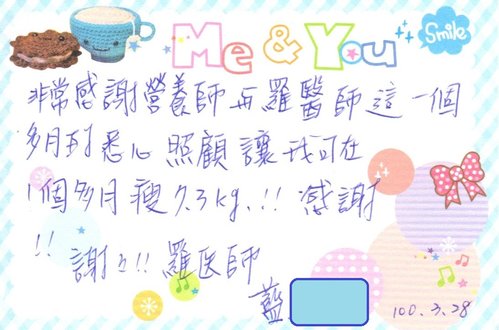 Me & You
Smile
非常感謝營養師再羅醫師這一個
多月到悉心照顧讓我可在
1個多月瘦7.3kg.!!感謝
!!
謝々!!羅医師
藍
100.3.28